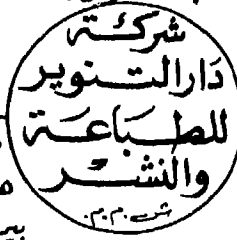 شركة
دار التنوير
للطباعة
والنشر
ش.م.م.